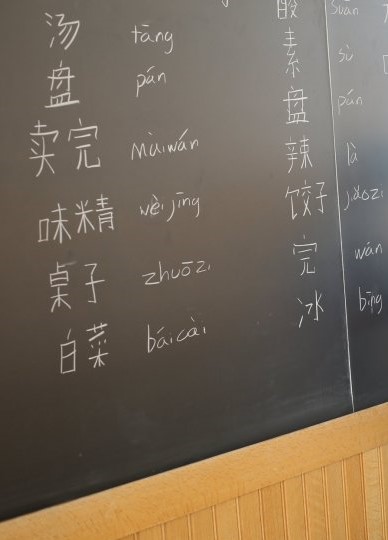 汤 tāng
盘 pán
卖完 màiwán
味精 wèijīng
桌子 zhuōzi
白菜 báicài
酸 suān
素 sù
盘 pán
辣 là
饺子 jiǎozi
完 wán
冰 bīng